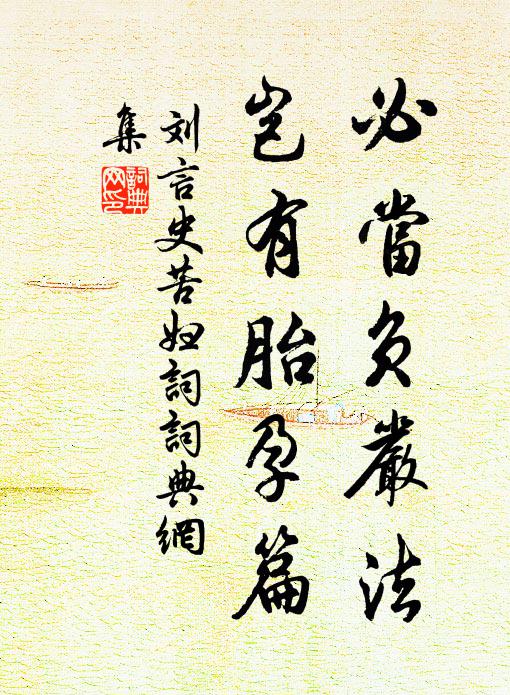 必當负嚴法
岂有胎孕篇
刘言史苦妇詞詞典網
集
詞典
网印